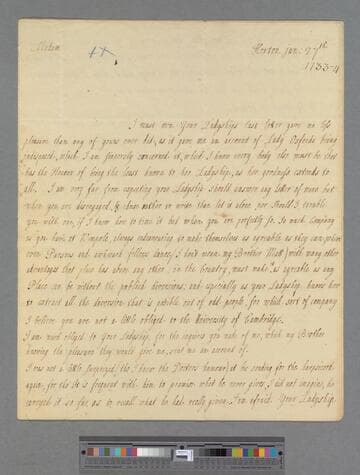 Madam
Horton Jan. 27th
1733-4
I must own Your Ladyship's last letter gave me less
pleasure than any of yours ever did, as it gave me an account of Lady Oxfords being
indisposed, which I am sincerely concerned at, which I know every body else must be that
has the Honour of being the least known to her Ladyship, as her goodness extends to
all. I am very far from expecting your Ladyship should answer any letter of mine but
when you are disengaged, & chuse rather to write than let it alone, nor should I trouble
you with one, if I knew how to time it but when you are perfectly so. So much Company
as you have at Wimpole, always endeavouring to make themselves as agreeable as they can, where
ever Parsons and awkward fellows cannot, (I don't mean my Brother Matt) with many other
advantages that place has above any other in the Country, must make it as agreeable as any
Place can be without the publick diversions, and especially as your Ladyship knows how
to extract all the diversion that is possible out of odd people, for which sort of company
I believe you are not a little obliged to the University of Cambridge.
I am much obliged to your Ladyship, for the inquiries you made of me, which my Brother
knowing the pleasure they would give me, sent me an account of.
I was not a little surprized, (tho I know the Doctors humour) at his sending for the harpsicord
again, for tho It is frequent with him to promise what he never gives, I did not imagine, he
carryed it so far, as to recall what he had really given. I am afraid Your Ladyship